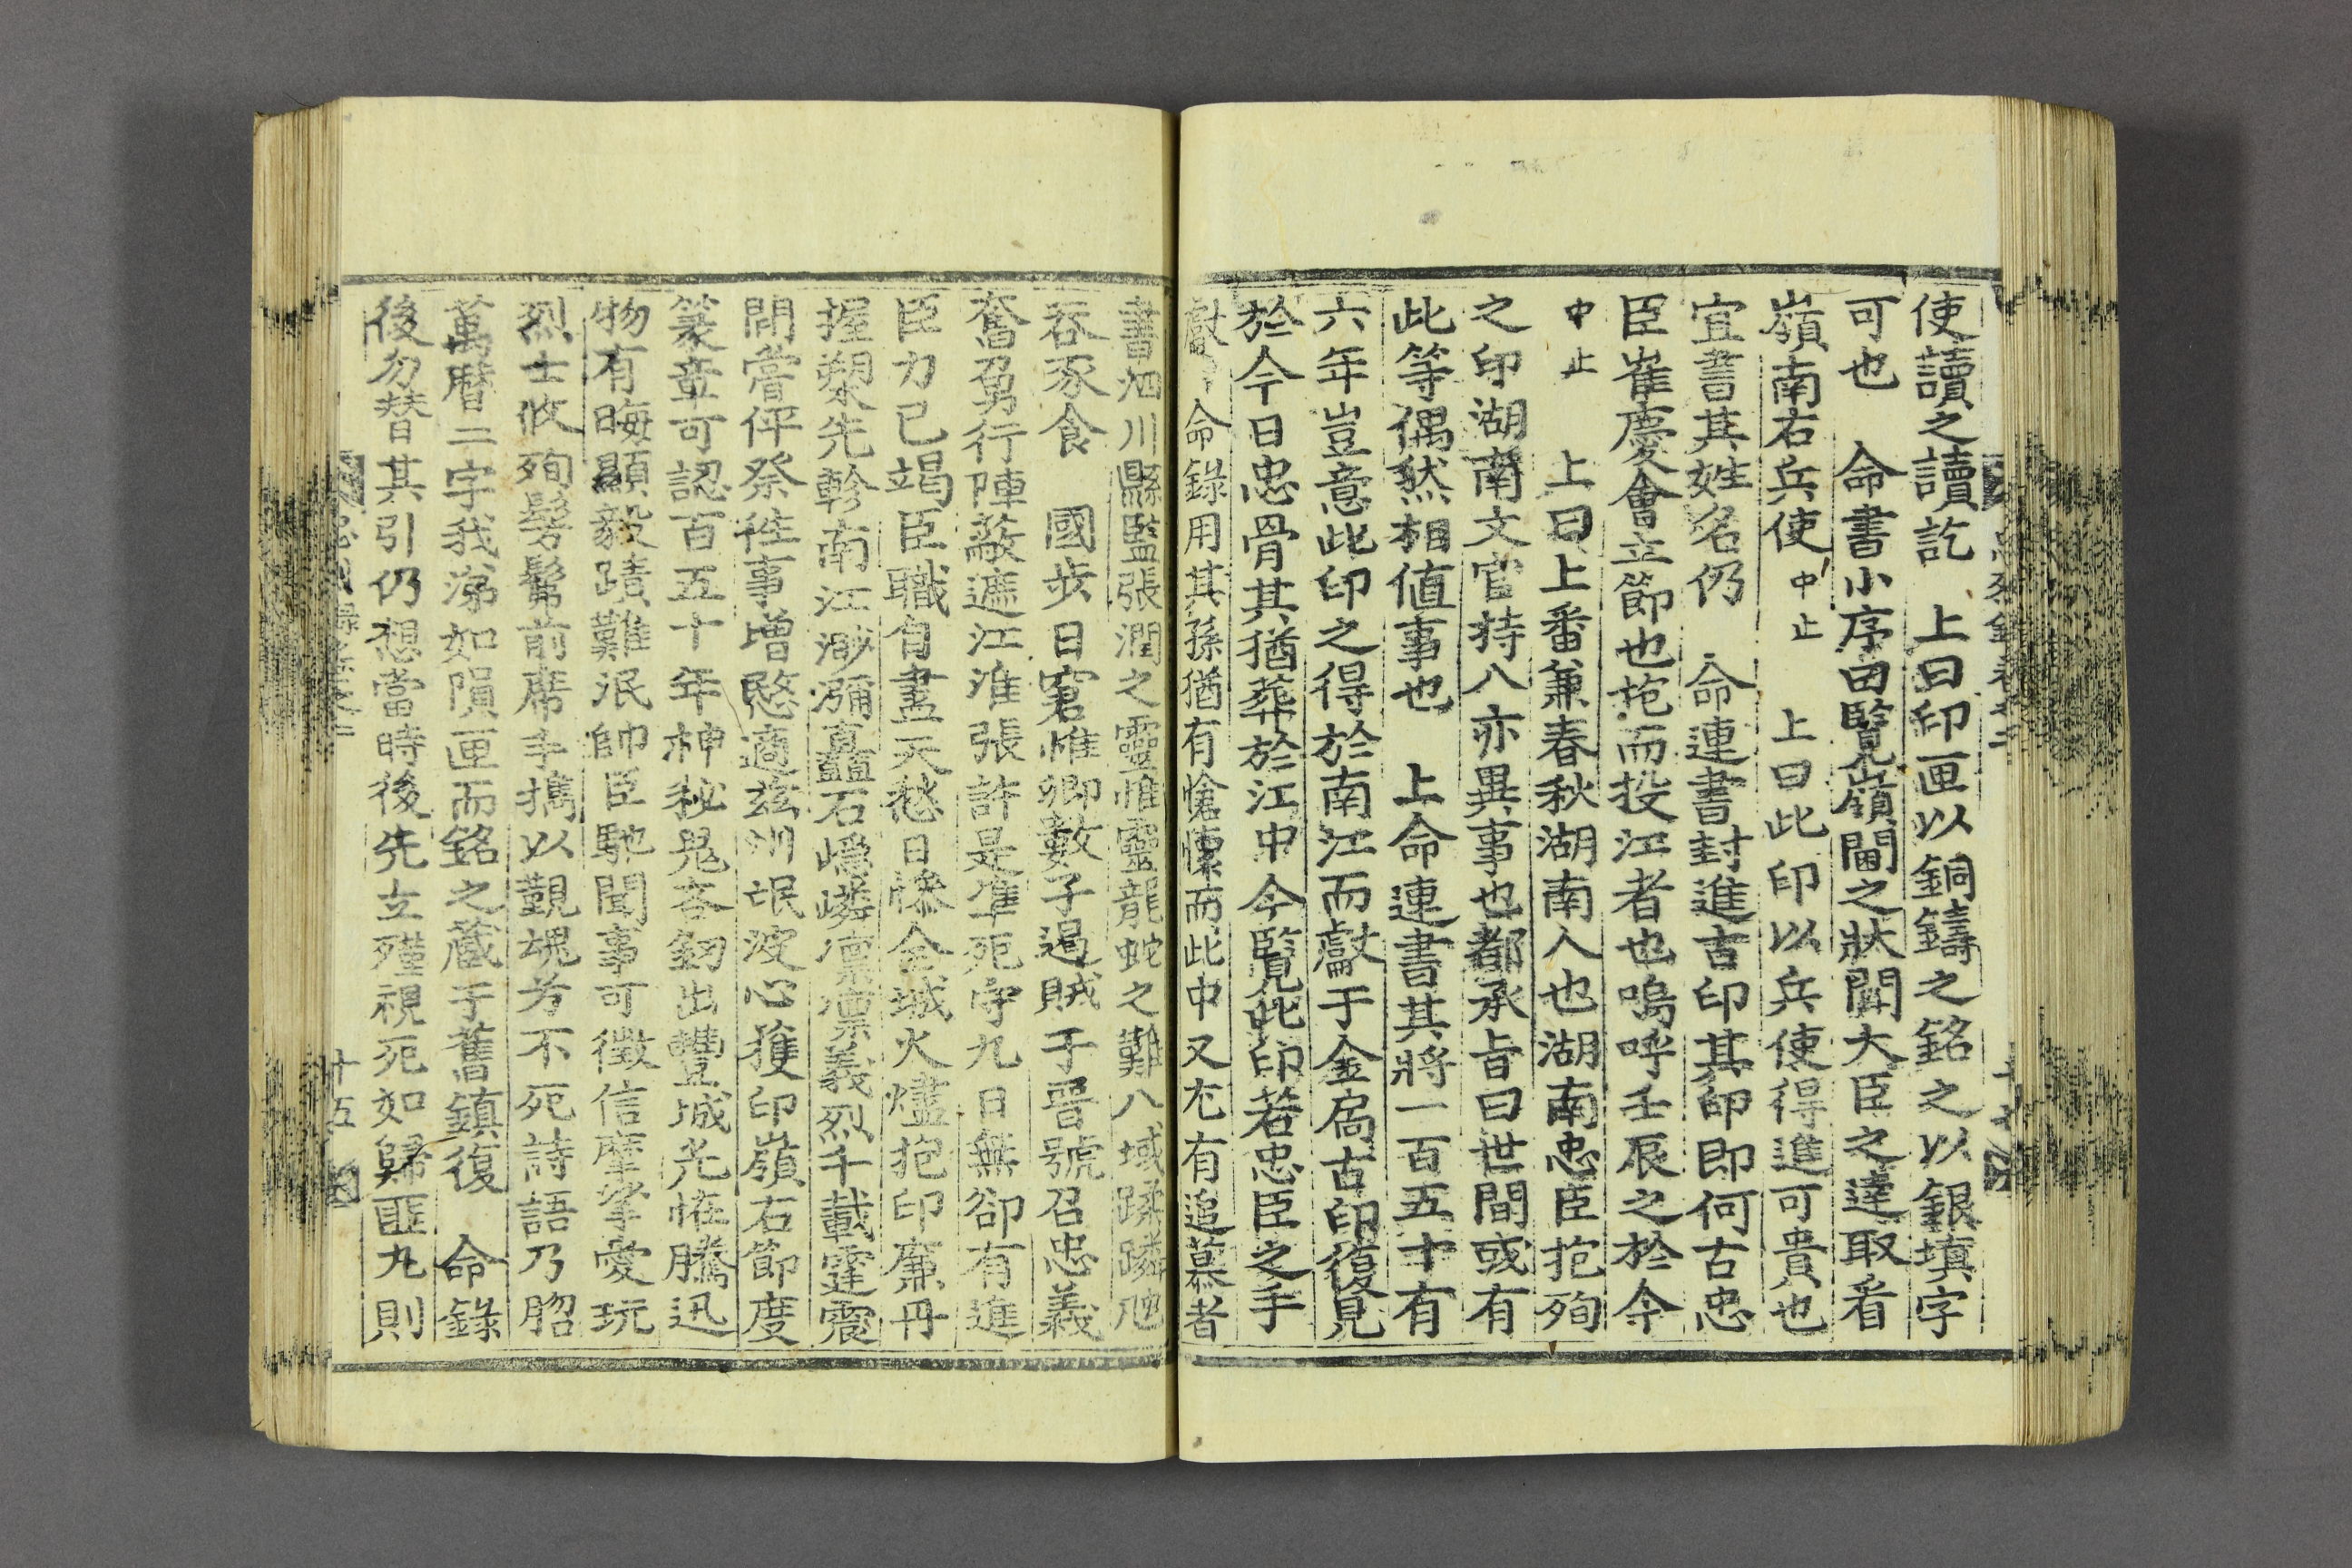 使讀之讀訖 上曰印匣以銅鑄之銘之以銀填字
可也 命書小序曰覽嶺閫之狀聞大臣之達取看
嶺南右兵使中止 上曰此印以兵使得進可貴也
宜書其姓名仍 命連書封進古印其印即何古忠
臣崔慶會立節也抱而投江者也嗚呼壬辰之於今
中止 上曰上番兼春秋湖南人也湖南忠臣抱殉
之印湖南文官持入亦異事也都承旨曰世間或有
此等偶然相値事也 上命連書其將一百五十有
六年豈意此印之得於南江而獻于金扃古印復見
於今日忠骨其猶葬於江中今覽此印若忠臣之手
獻 命錄用其孫猶有愴懷而此中又尤有追慕者
書泗川縣監張潤之靈惟靈龍蛇之難八域蹂躪虺
呑豕食 國步日窘惟卿數子遏賊于晉號召忠義
奮勇行陣蔽遮江淮張許是準死守九日無卻有進
臣力已竭臣職自盡天愁日慘金城火燼抱印廉丹
握槊先軫南江渺瀰矗石嶾嶙凜凜義烈千載霆震
閒嘗伻祭徃事增愍適玆訓氓波心獲印嶺右節度
篆章可認百五十年神秘鬼吝釰出豐城光恠騰迅
物有晦顯毅蹟難泯帥臣馳聞事可徵信摩挲愛玩
烈士攸殉髣髴前席手擕以覲魂兮不死詩語乃脗
萬曆二字我涕如隕匣而銘之藏于舊鎮復 命錄
後勿替其引仍想當時後先立殣視死如歸匪九則
十五